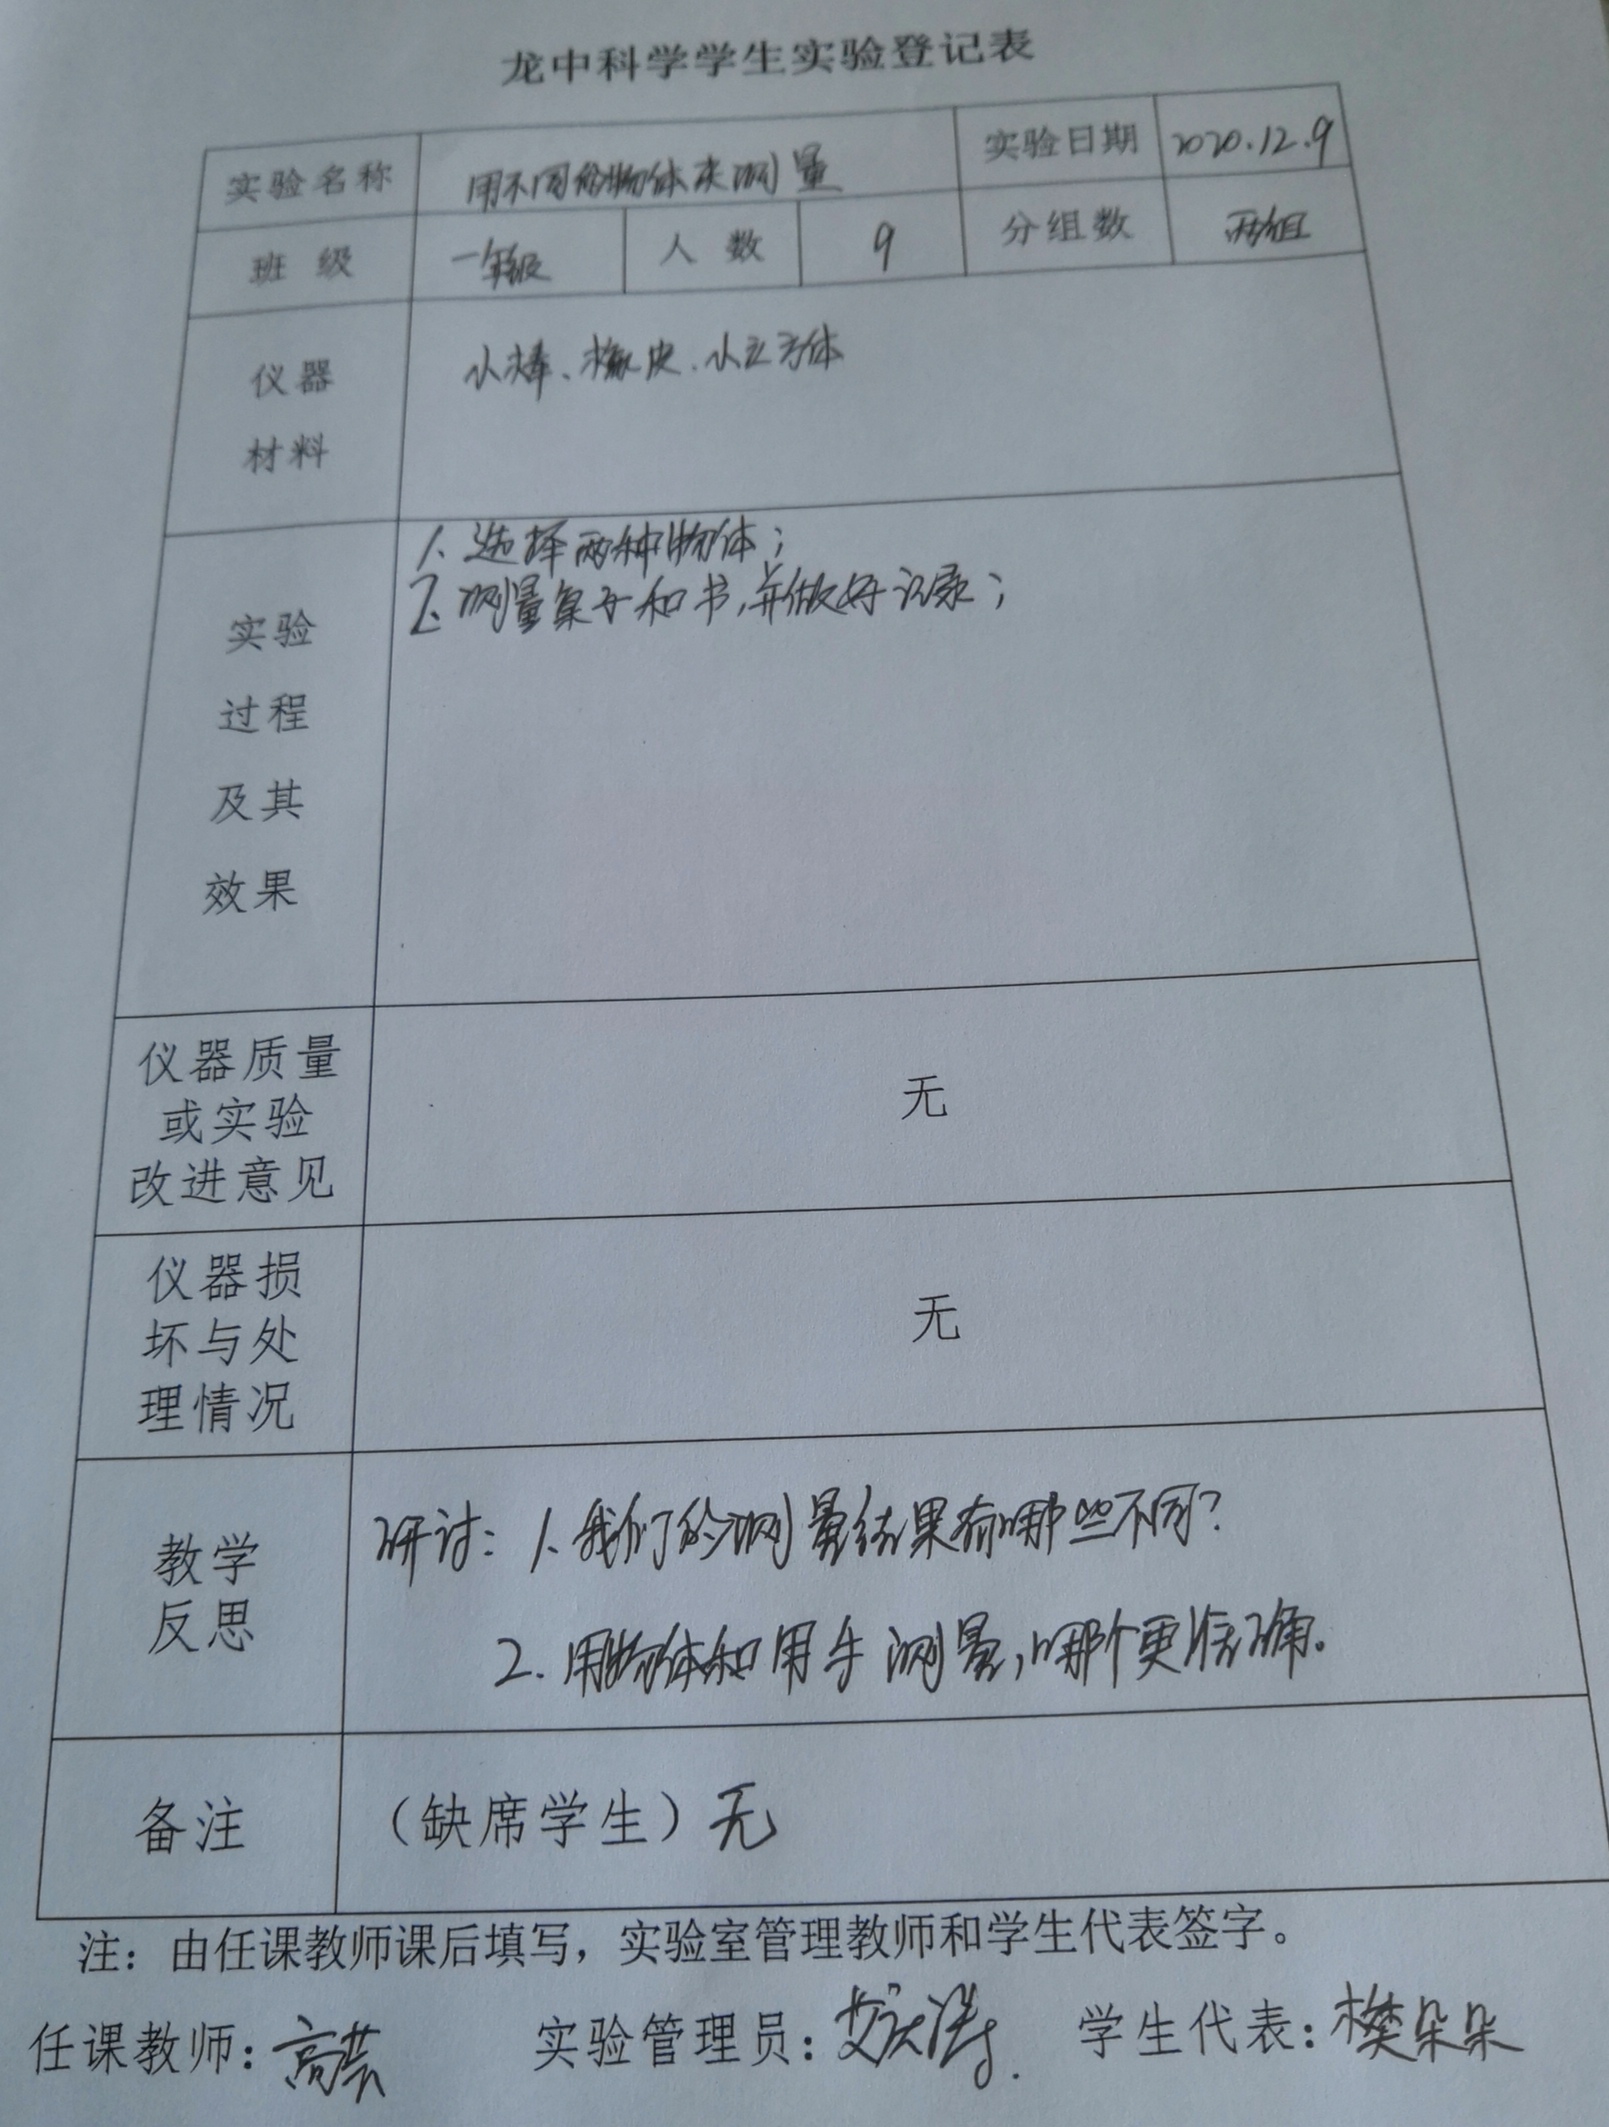 龙中科学学生实验登记表
实验名称 用不同的物体来测量 实验日期 2020.12.9
班 级 一年级 人 数 9 分组数 两组
仪器 小棒、橡皮、小立方体
材料
1、选择两种物体；
2、测量桌子和书，并做好记录；
实验
过程
及其
效果
仪器质量
或实验 无
改进意见
仪器损
坏与处 无
理情况
研讨：1、我们的测量结果有哪些不同？
教学
反思
2. 用物体和用手测量，哪个更准确。
备注 （缺席学生）无
注：由任课教师课后填写，实验室管理教师和学生代表签字。
任课教师：高芸 实验管理员： 学生代表：樊朵朵